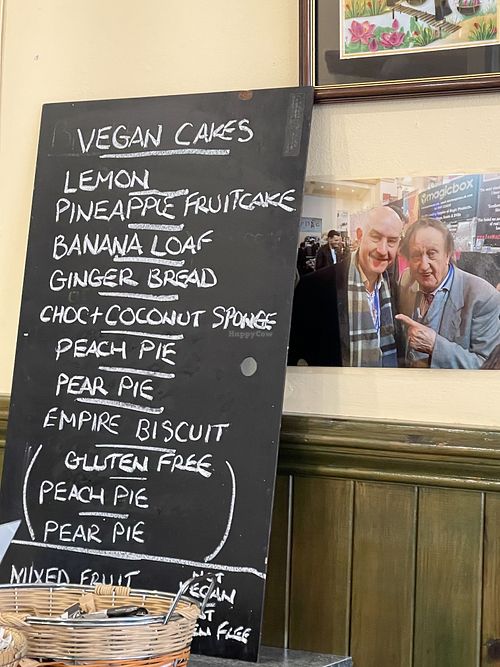 VEGAN CAKES
LEMON
PINEAPPLE FRUITCAKE
BANANA LOAF
GINGER BREAD
CHOC + COCONUT SPONGE
PEACH PIE
PEAR PIE
EMPIRE BISCUIT
(GLUTEN FREE
PEACH PIE
PEAR PIE)
MIXED FRUIT
NOT
VEGAN
FREE
magicbox
HappyCow